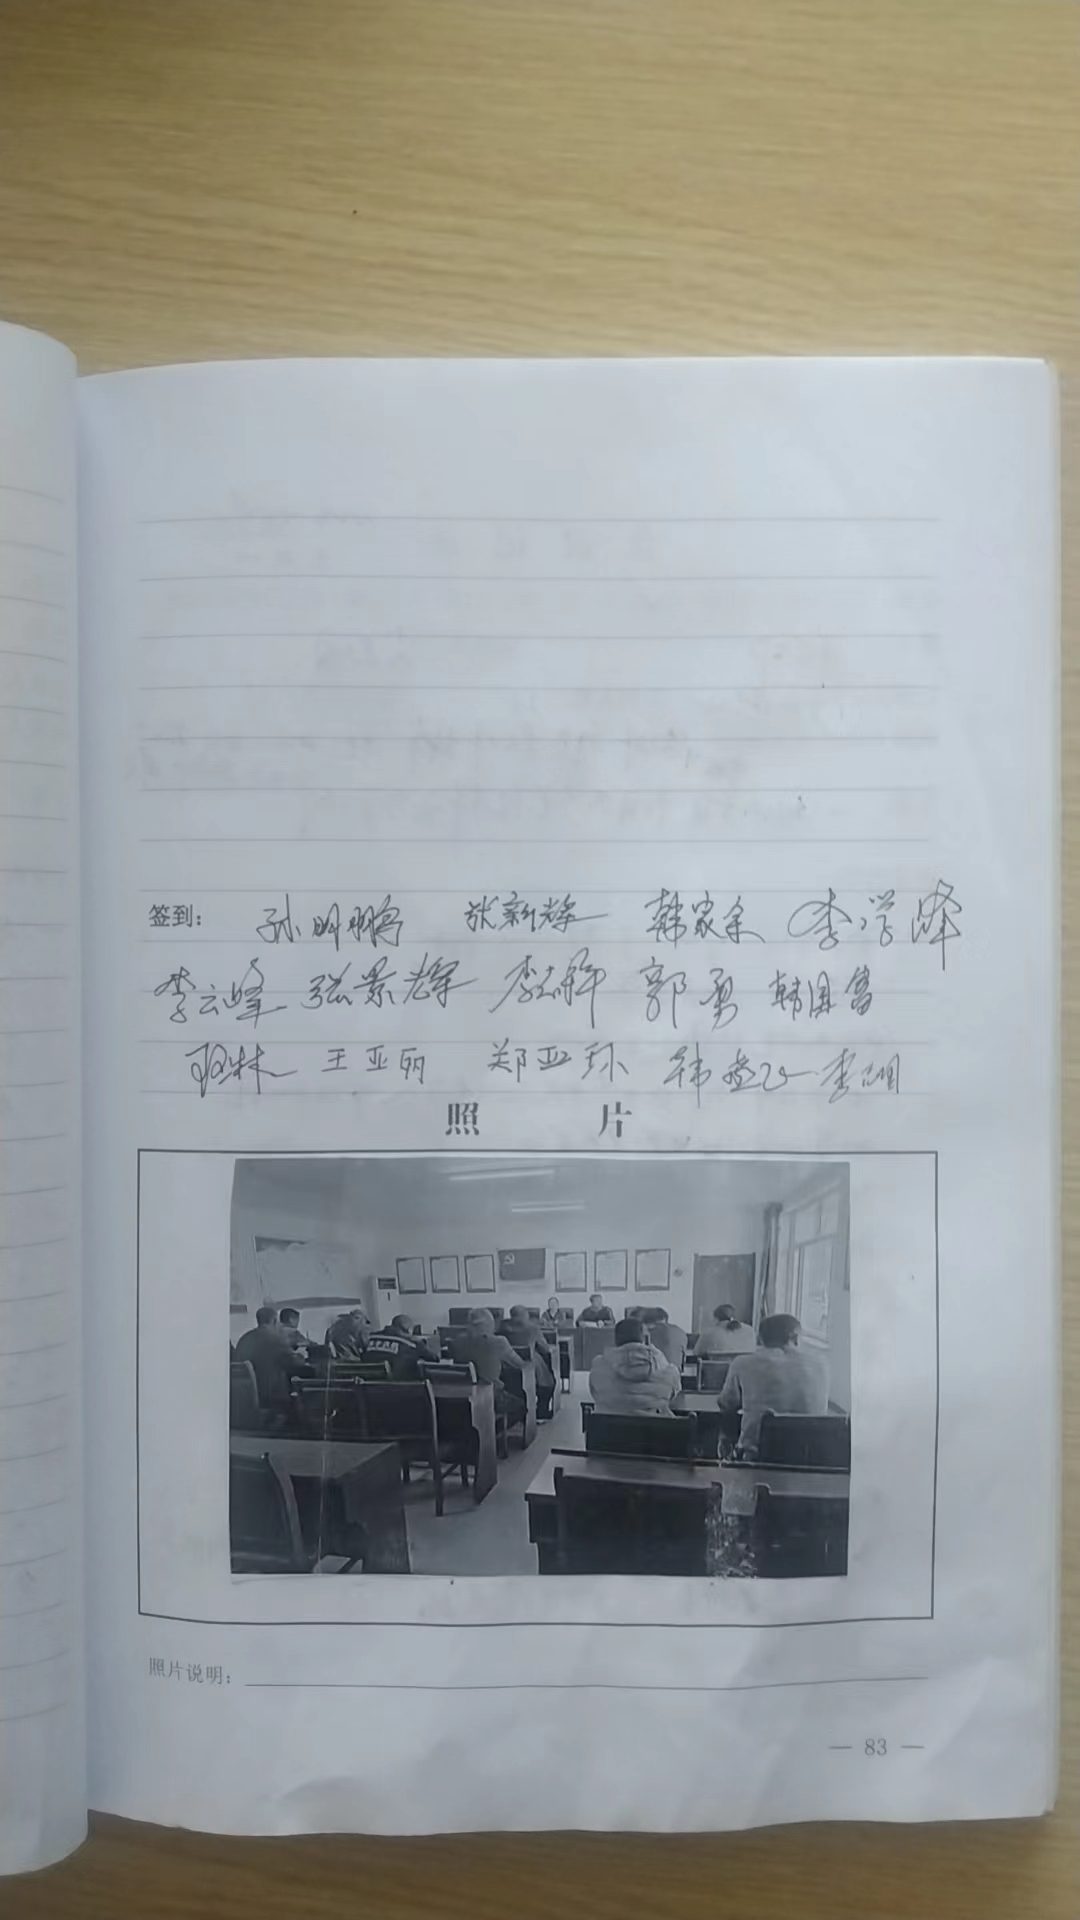 签到： 孙明鹏 张新辉 韩家余 李学峰
李云峰 张景辉 李志辉 郭勇 韩国富
王亚丽 郑亚环 李明
照 片
照片说明：
— 83 —